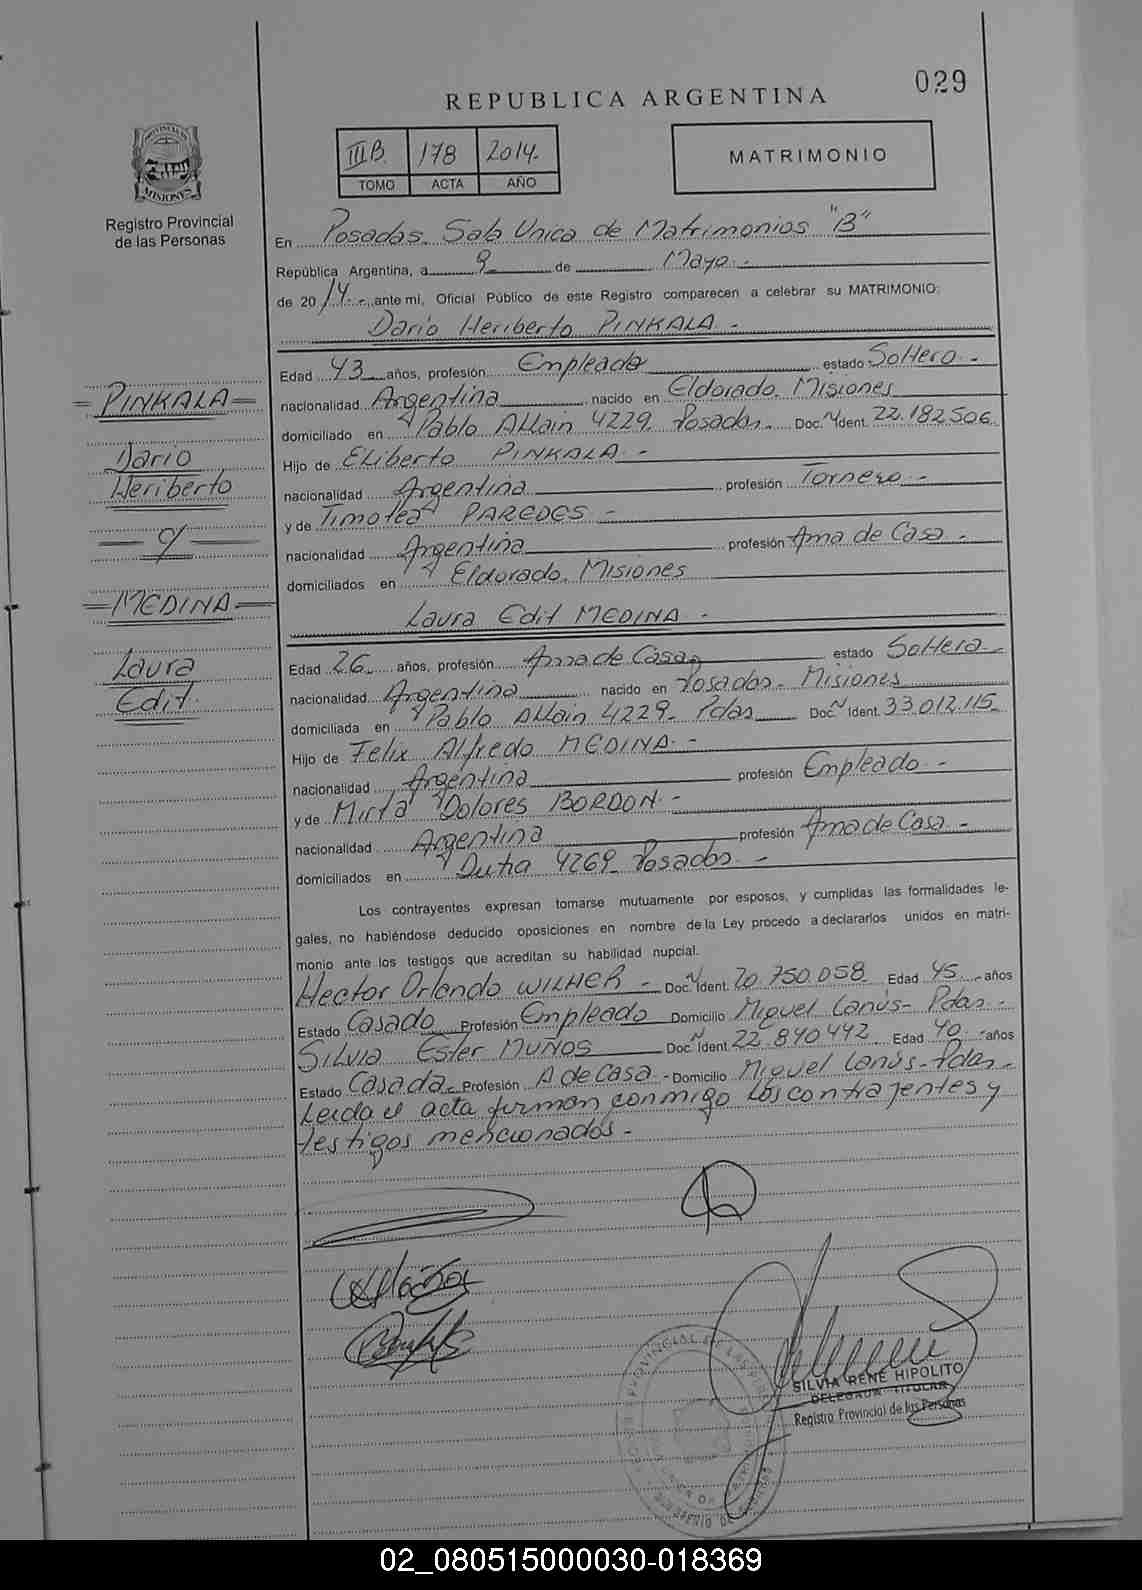 029
REPUBLICA ARGENTINA
IIIB. 178 2014.-
TOMO ACTA AÑO
MATRIMONIO
PROVINCIA DE MISIONES
Registro Provincial
de las Personas
En Posadas. Sala Unica de Matrimonios "B"
República Argentina, a 9 de Mayo.-
de 2014.- ante mi, Oficial Público de este Registro comparecen a celebrar su MATRIMONIO:
Dario Heriberto PINKALA.-
Edad 43 años, profesión Empleado estado Soltero.-
nacionalidad Argentina nacido en Eldorado. Misiones
domiciliado en Pablo Allain 4229. Posadas.- Doc. N Ident. 22.182.506.
Hijo de Eliberto PINKALA.-
nacionalidad Argentina profesión Tornero.-
y de Timotea PAREDES.-
nacionalidad Argentina profesión Ama de Casa.-
domiciliados en Eldorado. Misiones
Laura Edit MEDINA.-
Edad 26 años, profesión Ama de Casa estado Soltera.-
nacionalidad Argentina nacido en Posadas.- Misiones
domiciliada en Pablo Allain 4229.- Pdas Doc. N Ident. 33.012.115.
Hijo de Felix Alfredo MEDINA.-
nacionalidad Argentina profesión Empleado.-
y de Mirta Dolores BORDON.-
nacionalidad Argentina profesión Ama de Casa.-
domiciliados en Dutra 4269. Posadas.-
Los contrayentes expresan tomarse mutuamente por esposos, y cumplidas las formalidades le-
gales, no habiéndose deducido oposiciones en nombre de la Ley procedo a declararlos unidos en matri-
monio ante los testigos que acreditan su habilidad nupcial.
Hector Orlando WILHER.- Doc. N Ident. 20.750.058 Edad 45.- años
Estado Casado Profesión Empleado Domicilio Miguel Lanús- Pdas.-
Silvia Ester MUÑOS Doc. N Ident. 22.890.442. Edad 40.- años
Estado Casada.- Profesión A de Casa.- Domicilio Miguel Lanús- Pdas.-
Leida el acta firman conmigo los contrayentes y
testigos mencionados.-
=PINKALA=
Dario
Heriberto
— c/ —
=MEDINA=
Laura
Edit.
SILVIA RENE HIPOLITO
DELEGADA TITULAR
Registro Provincial de las Personas
02_080515000030-018369